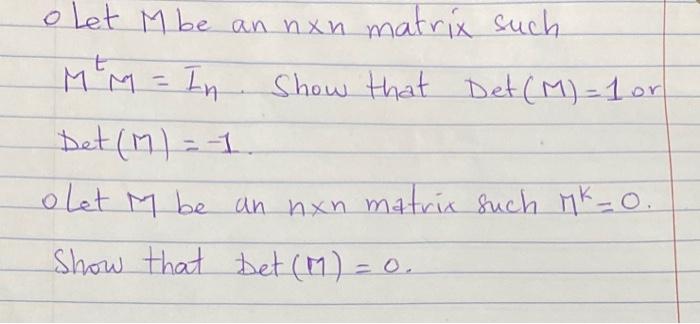 o Let M be an nxn matrix such
M^t M = I_n. Show that Det(M)=1 or
Det(M) = -1.
o Let M be an nxn matrix such M^k = 0.
Show that Det(M) = 0.